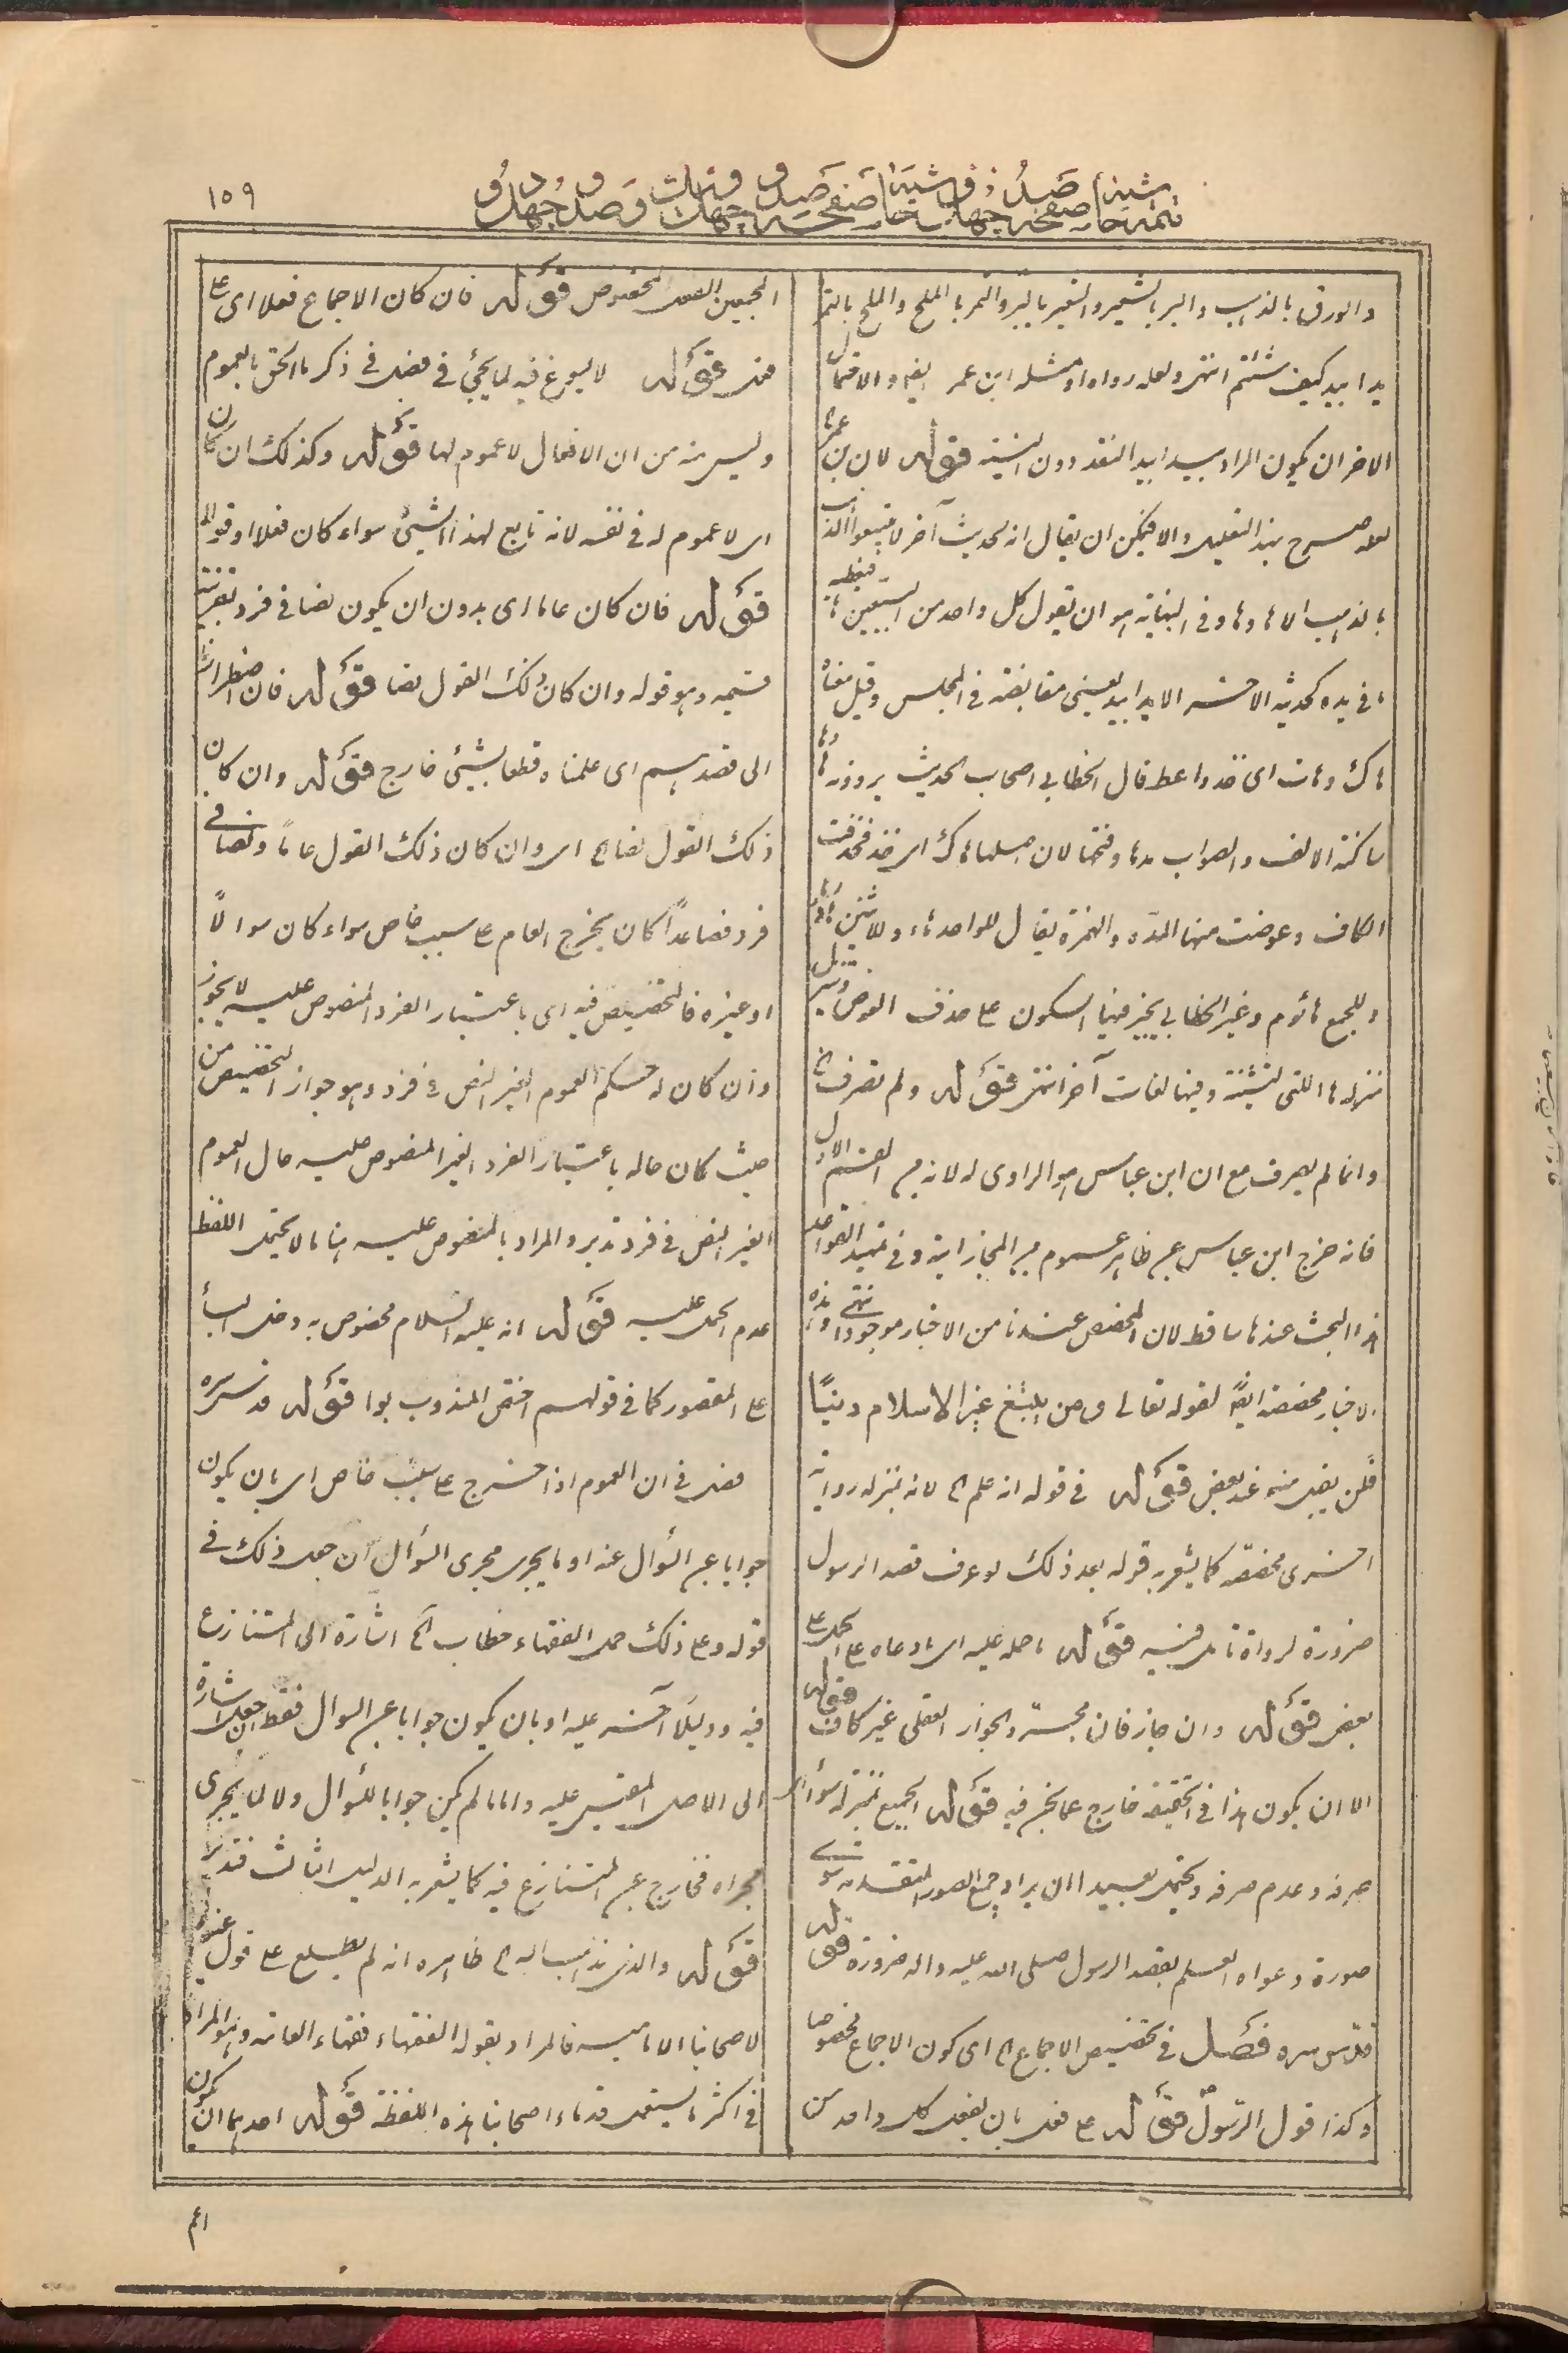 ١٥٩
والورق بالذهب والبر بالشعير والشعير بالبر والتمر بالملح والملح بالتمر
يدا بيد كيف شئتم انتهى ولعله رواه او مثله ابن عمر ايضا والاحتمال
الاخر ان يكون المراد بيدا بيد النقد دون النسية قوله لان ابن عمر
لعله صرح بهذا التعليل والا فيمكن ان يقال انه لحديث آخر لا تبيعوا الذهب
بالذهب الا ها وها وفى النهاية هو ان يقول كل واحد من البيعين ها فيعطيه
ما فى يده كحديثه الاخر الا يدا بيد يعنى مقابضة فى المجلس وقيل معناه
هاك وهات اى خذ واعط قال الخطابى اصحاب الحديث يروونه ها وها
ساكنة الالف والصواب مدها وفتحها لان اصلها هاك اى خذ فحذفت
الكاف وعوضت منها المدة والهمزة يقال للواحد هاء وللاثنين هاؤما
وللجمع هاؤم وغير الخطابى يجيز فيها السكون على حذف العوض وتنزل
منزلة ها اللتى للتنبيه وفيها لغات آخر انتهى قوله ولم تصرف الخ
وانما لم يصرف مع ان ابن عباس هو الراوى له لانه من القسم الاول
فانه خرج ابن عباس عن ظاهر عموم من المجازاية وفى تمهيد القواعد
هذا البحث عندنا ساقط لان المخصص عندنا من الاخبار موجود انتهى وهذه
الاخبار مخصصة ايضا لقوله تعالى ومن يبتغ غير الاسلام دينًا
فلن يقبل منه عند بعض قوله فى قوله انه علم الخ لانه بمنزلة رواية
اخرى مخصصة كما يشعر به قوله بعد ذلك لو عرف قصد الرسول
ضرورة لرواة تامل فيه قوله ما حمله عليه اى ما دعاه على الحمل على
بعض قوله وان جاز فان مجرد الجواز العقلى غير كاف قوله
الا ان يكون هذا فى الحقيقة خارج عما نحن فيه قوله الجميع بمنزلة سواء اى
صرفه وعدم صرفه ويحتمل بعيدا ان يراد جميع الصور المتقدمة سوى
صورة دعواه العلم بقصد الرسول صلى الله عليه واله ضرورة قوله
قدس سره فصل فى تخصيص الاجماع الخ اى كون الاجماع مخصوصا
وكذا قول الرسول قوله على فعل بان يفعل كل واحد من
المجمعين الفعل المخصوص قوله فان كان الاجماع فعلا اى على
فعل قوله لا يسوغ فيه لما يجئ فى فصل فى ذكر ما الحق بالعموم
وليس منه من ان الافعال لا عموم لها قوله وكذلك ان كان
اى لا عموم له فى نفسه لانه تابع لهذا الشيئ سواء كان فعلا او قولا
قوله فان كان عاما اى بدون ان يكون نصا فى فرد بقرينة
قسيمه وهو قوله وان كان ذلك القول نصا قوله فان اضطررنا
الى قصدهم اى علمناه قطعا بشيئ خارج قوله وان كان
ذلك القول نصا الخ اى وان كان ذلك القول عاما ونصا فى
فرد فصاعداً كان يخرج العام على سبب خاص سواء كان سوالاً
او غيره فالتخصيص فيه اى باعتبار الفرد المنصوص عليه لا يجوز
وان كان له حكم العموم الغير النص فى فرد وهو جواز التخصيص من
حيث كان حاله باعتبار الفرد الغير المنصوص عليه حال العموم
الغير النص فى فرد تدبر والمراد بالمنصوص عليه هنا ما لا يحتمل اللفظ
عدم الحمل عليه قوله انه عليه السلام مخصوص به دخل الباء
على المقصور كما فى قولهم اختص المندوب بوا قوله قدس سره
فصل فى ان العموم اذا خرج على سبب خاص اى بان يكون
جوابا عن السؤال عنه او ما يجرى مجرى السؤال ان جعل ذلك فى
قوله وعلى ذلك حمل الفقهاء خطاب الخ اشارة الى المتنازع
فيه ودليلا آخر عليه او بان يكون جوابا عن السوال فقط ان جعل اشارة
الى الاصل المقيس عليه واما ما لم يكن جوابا للسؤال ولا لما يجرى
مجراه فخارج عن المتنازع فيه كما يشعر به الدليل الثالث فتدبر
قوله والذى نذهب اليه الخ ظاهره انه لم يطلع على قول غيره
لاصحابنا الامامية فالمراد بقوله الفقهاء فقهاء العامة وهو المراد
فى اكثر ما يستعمل قدماء اصحابنا هذه اللفظة قوله احدهما ان يكون
اعم